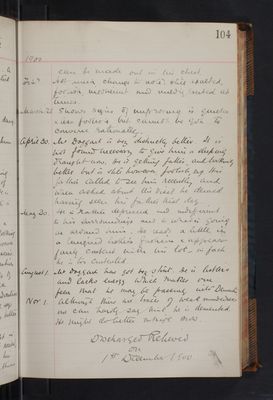 104
1900
can be made out in his chest
Feby. Not much change to note. Still exalted,
foolish incoherent and wildly excited at
times.
March 28 Shows signs of improving, is quieter
less foolish but cannot be got to
converse rationally.
April 30. Mr Doggart is very distinctly better. It is
not found necessary to give him a sleeping
draught now. He is getting fatter and looking
better but is still however foolish. 
father called to see him recently, and
when asked about the visit he denied
having seen his father that day.
May 30. He is rather depressed and indifferent
to his surroundings and is what is going
on around him. He reads a little in
a languid listless fashion & appears
fairly content with his lot in fact
he is too contented.
August 1. Mr Doggart has got very stout. He is listless
and lacks energy which makes one
fear that he may be passing into Dementia.
Nov 1. Although there are traces of weak mindedness
we can hardly say that he is demented.
He might do better outside now.
Discharged Relieved
on
1st December 1900